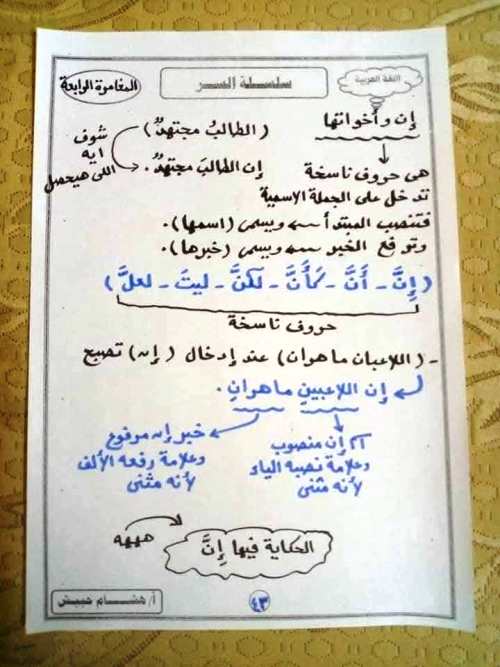 اللغة العربية
سلسلة السر
المغامرة الرابعة
إن وأخواتها
هى حروف ناسخة
تدخل على الجملة الاسمية
فتنصب المبتدأ ويسمى (اسمها).
وترفع الخبر ويسمى (خبرها).
(الطالبُ مجتهدٌ)
إن الطالبَ مجتهدٌ.
شوف
ايه
اللى هيحصل
(إِنَّ - أَنَّ - كَأَنَّ - لكنَّ - ليتَ - لعلَّ)
حروف ناسخة
- (اللاعبان ماهران) عند إدخال (إن) تصبح
إن اللاعبينِ ماهرانِ.
اسم إن منصوب
وعلامة نصبه الياء
لأنه مثنى
خبر إن مرفوع
وعلامة رفعه الألف
لأنه مثنى
الحكاية فيها إِنَّ
هييه
أ/ هشام حبيش
٤٣